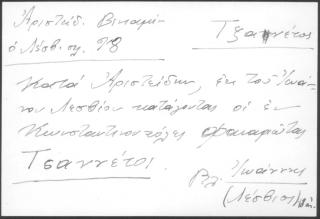 Ἀριστείδ. Βικαρι-
ὁ Λέσβι. σελ. 98
Τζαννέτος
κατὰ Ἀριστείδην, ἐκ τοῦ Ἰωάν-
νου Λεσβίου κατάγονται οἱ ἐν
Κωνσταντινουπόλει Φαναριῶται
Τσαννέτοι.
Βλ. Ἰωάννης
(Λέσβιος)